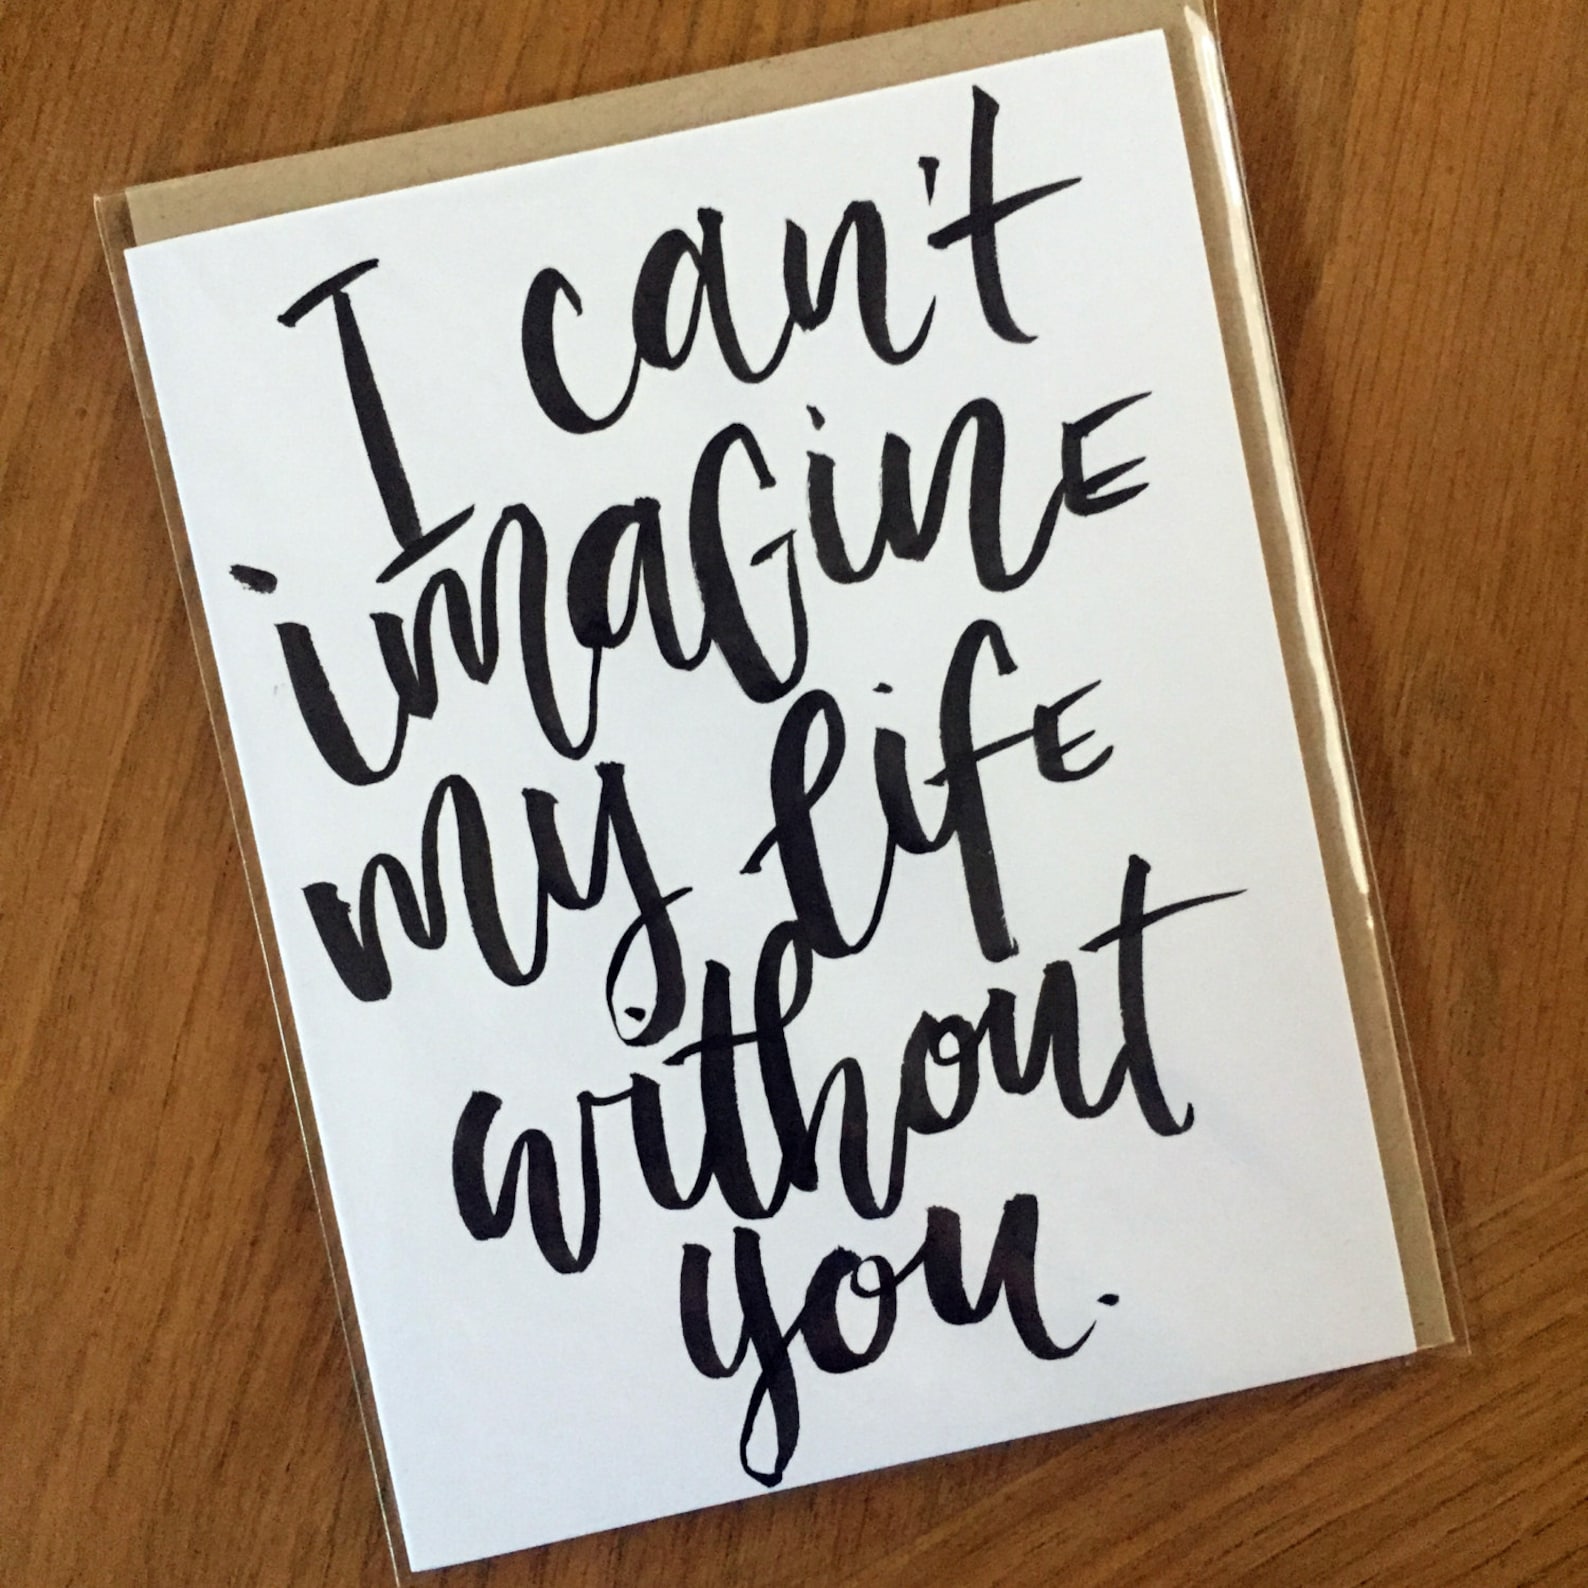 I can't
imaGinE
my lifE
without
you.